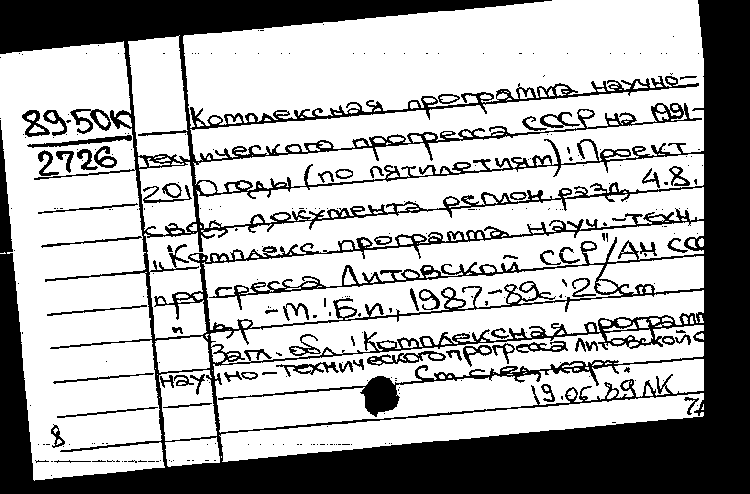 89-50К
2726
Комплексная программа научно-
технического прогресса СССР на 1991-
2010 годы (по пятилетиям): Проект
свод. документа регион. разд. 4.8.
"Комплекс. программа науч.-техн.
прогресса Литовской ССР" / АН ССС
и др - М.: Б.и., 1987.-89с.; 20см
Загл. обл.: Комплексная программ
научно-технического прогресса Литовской С
См след. карт.
19.06.89 ЛК
8